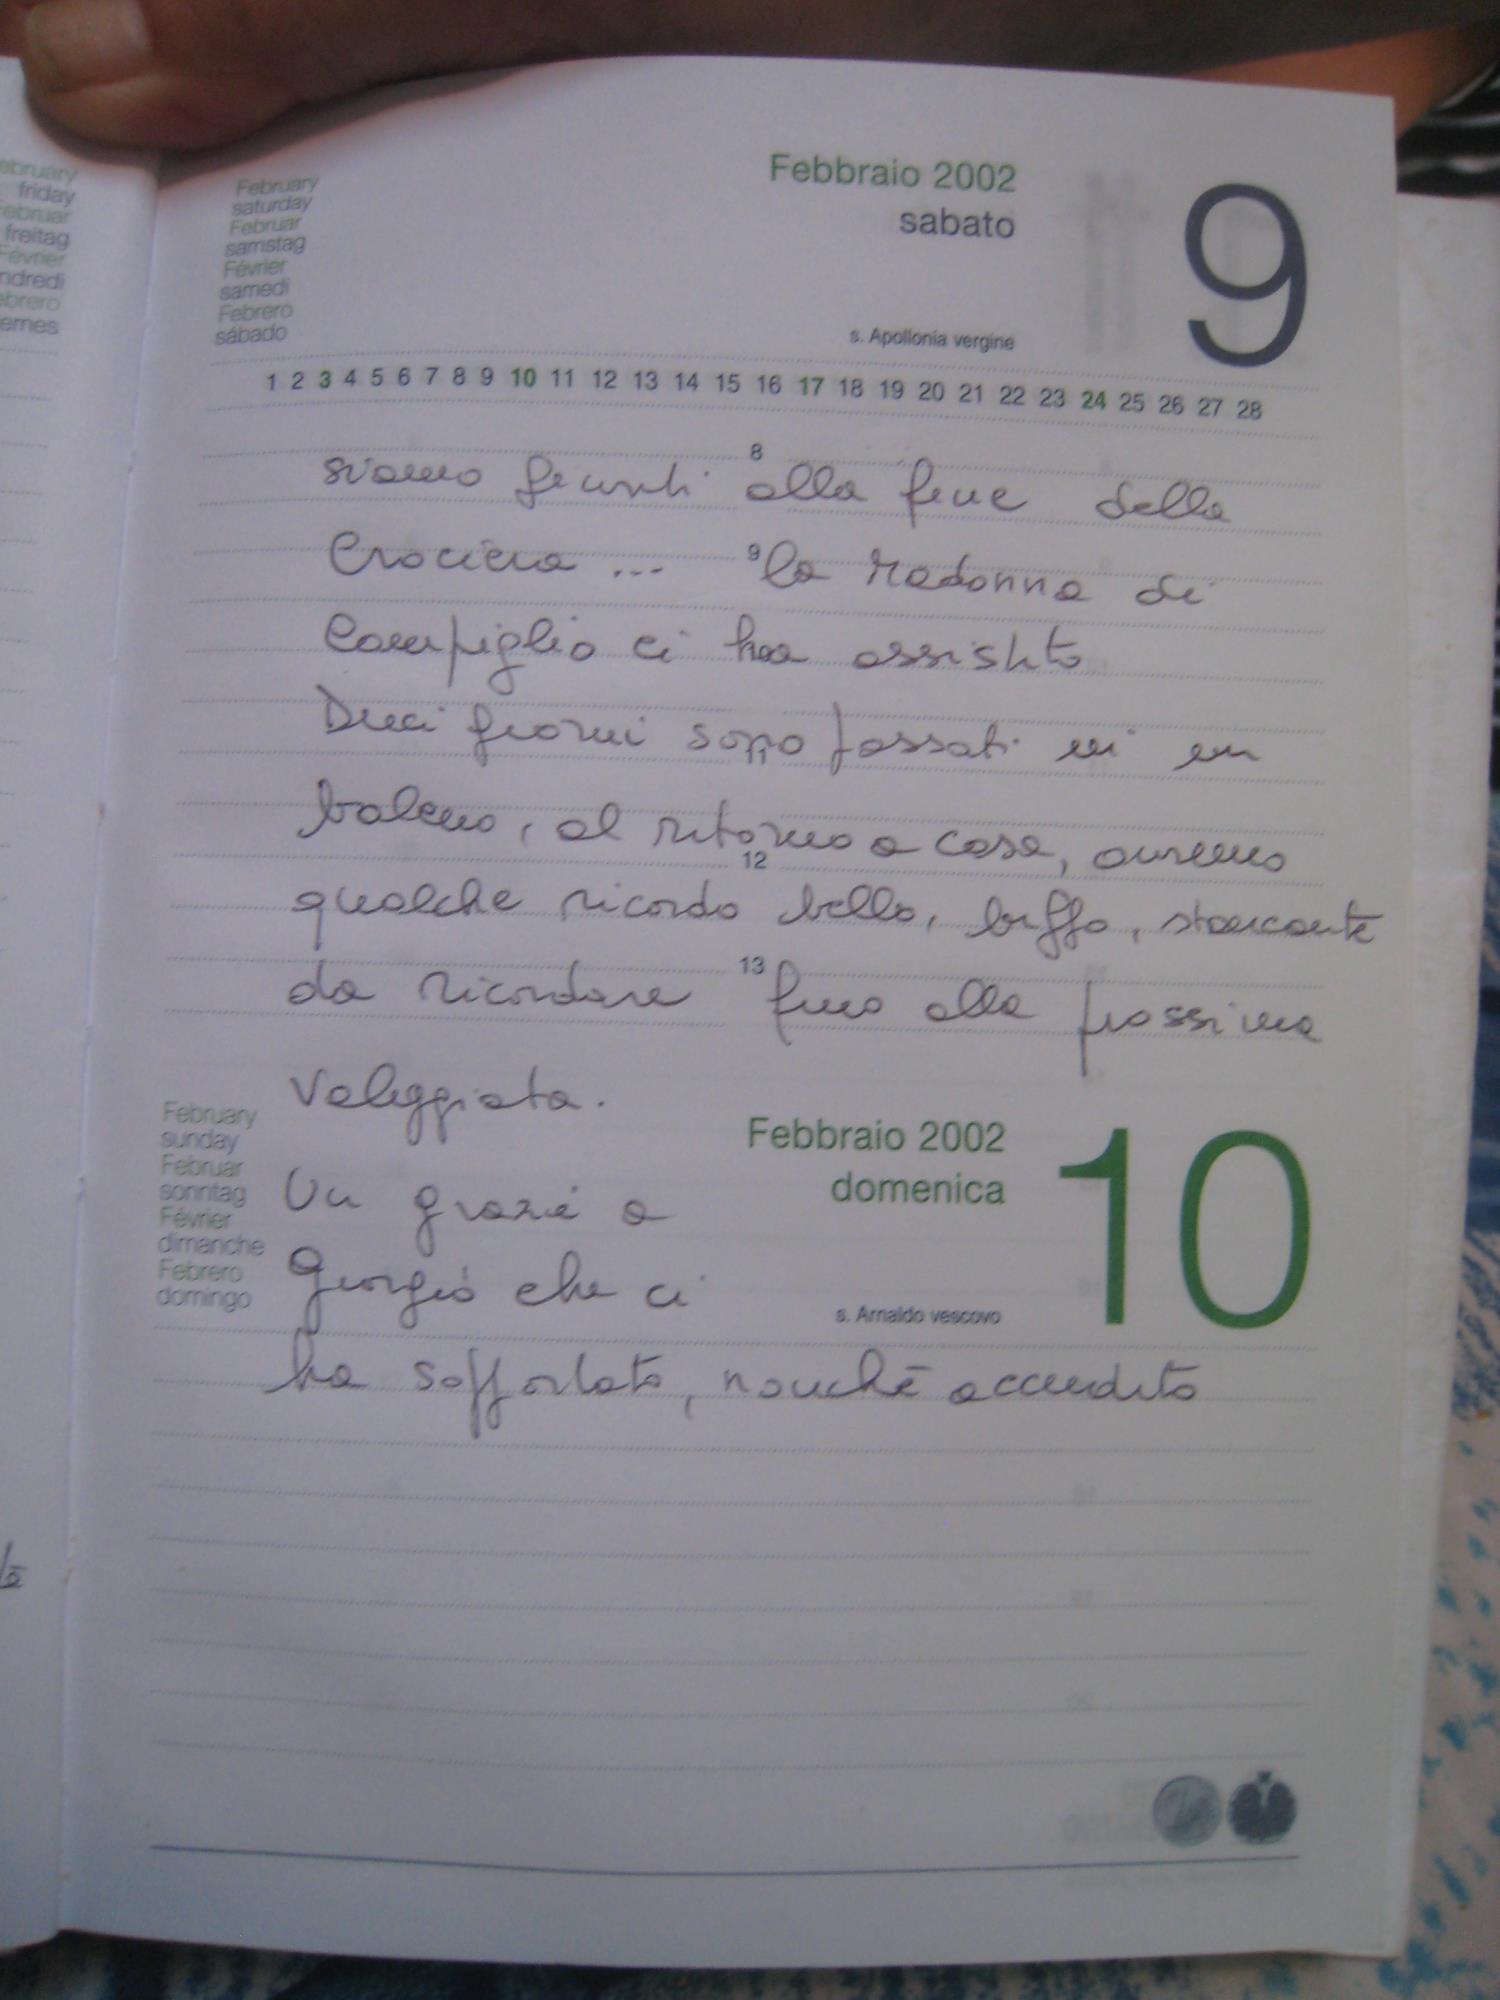 ebruary
friday
ebruar
freitag
Février
ndredi
ebrero
ernes
February
saturday
Februar
samstag
Février
samedi
Febrero
sábado
Febbraio 2002
sabato
9
s. Apollonia vergine
1 2 3 4 5 6 7 8 9 10 11 12 13 14 15 16 17 18 19 20 21 22 23 24 25 26 27 28
8
siamo giunti alla fine della
9
Crociera ... la Madonna di
Campiglio ci ha assistito
Dieci giorni sono passati in un
11
baleno, al ritorno a casa, avremo
12
qualche ricordo bello, buffo, stancante
13
da ricordare fino alla prossima
Veleggiata.
February
sunday
Februar
sonntag
Février
dimanche
Febrero
domingo
Febbraio 2002
domenica
10
s. Arnaldo vescovo
Un grazie a
Giorgio che ci
ha sopportato, nonchè accudito